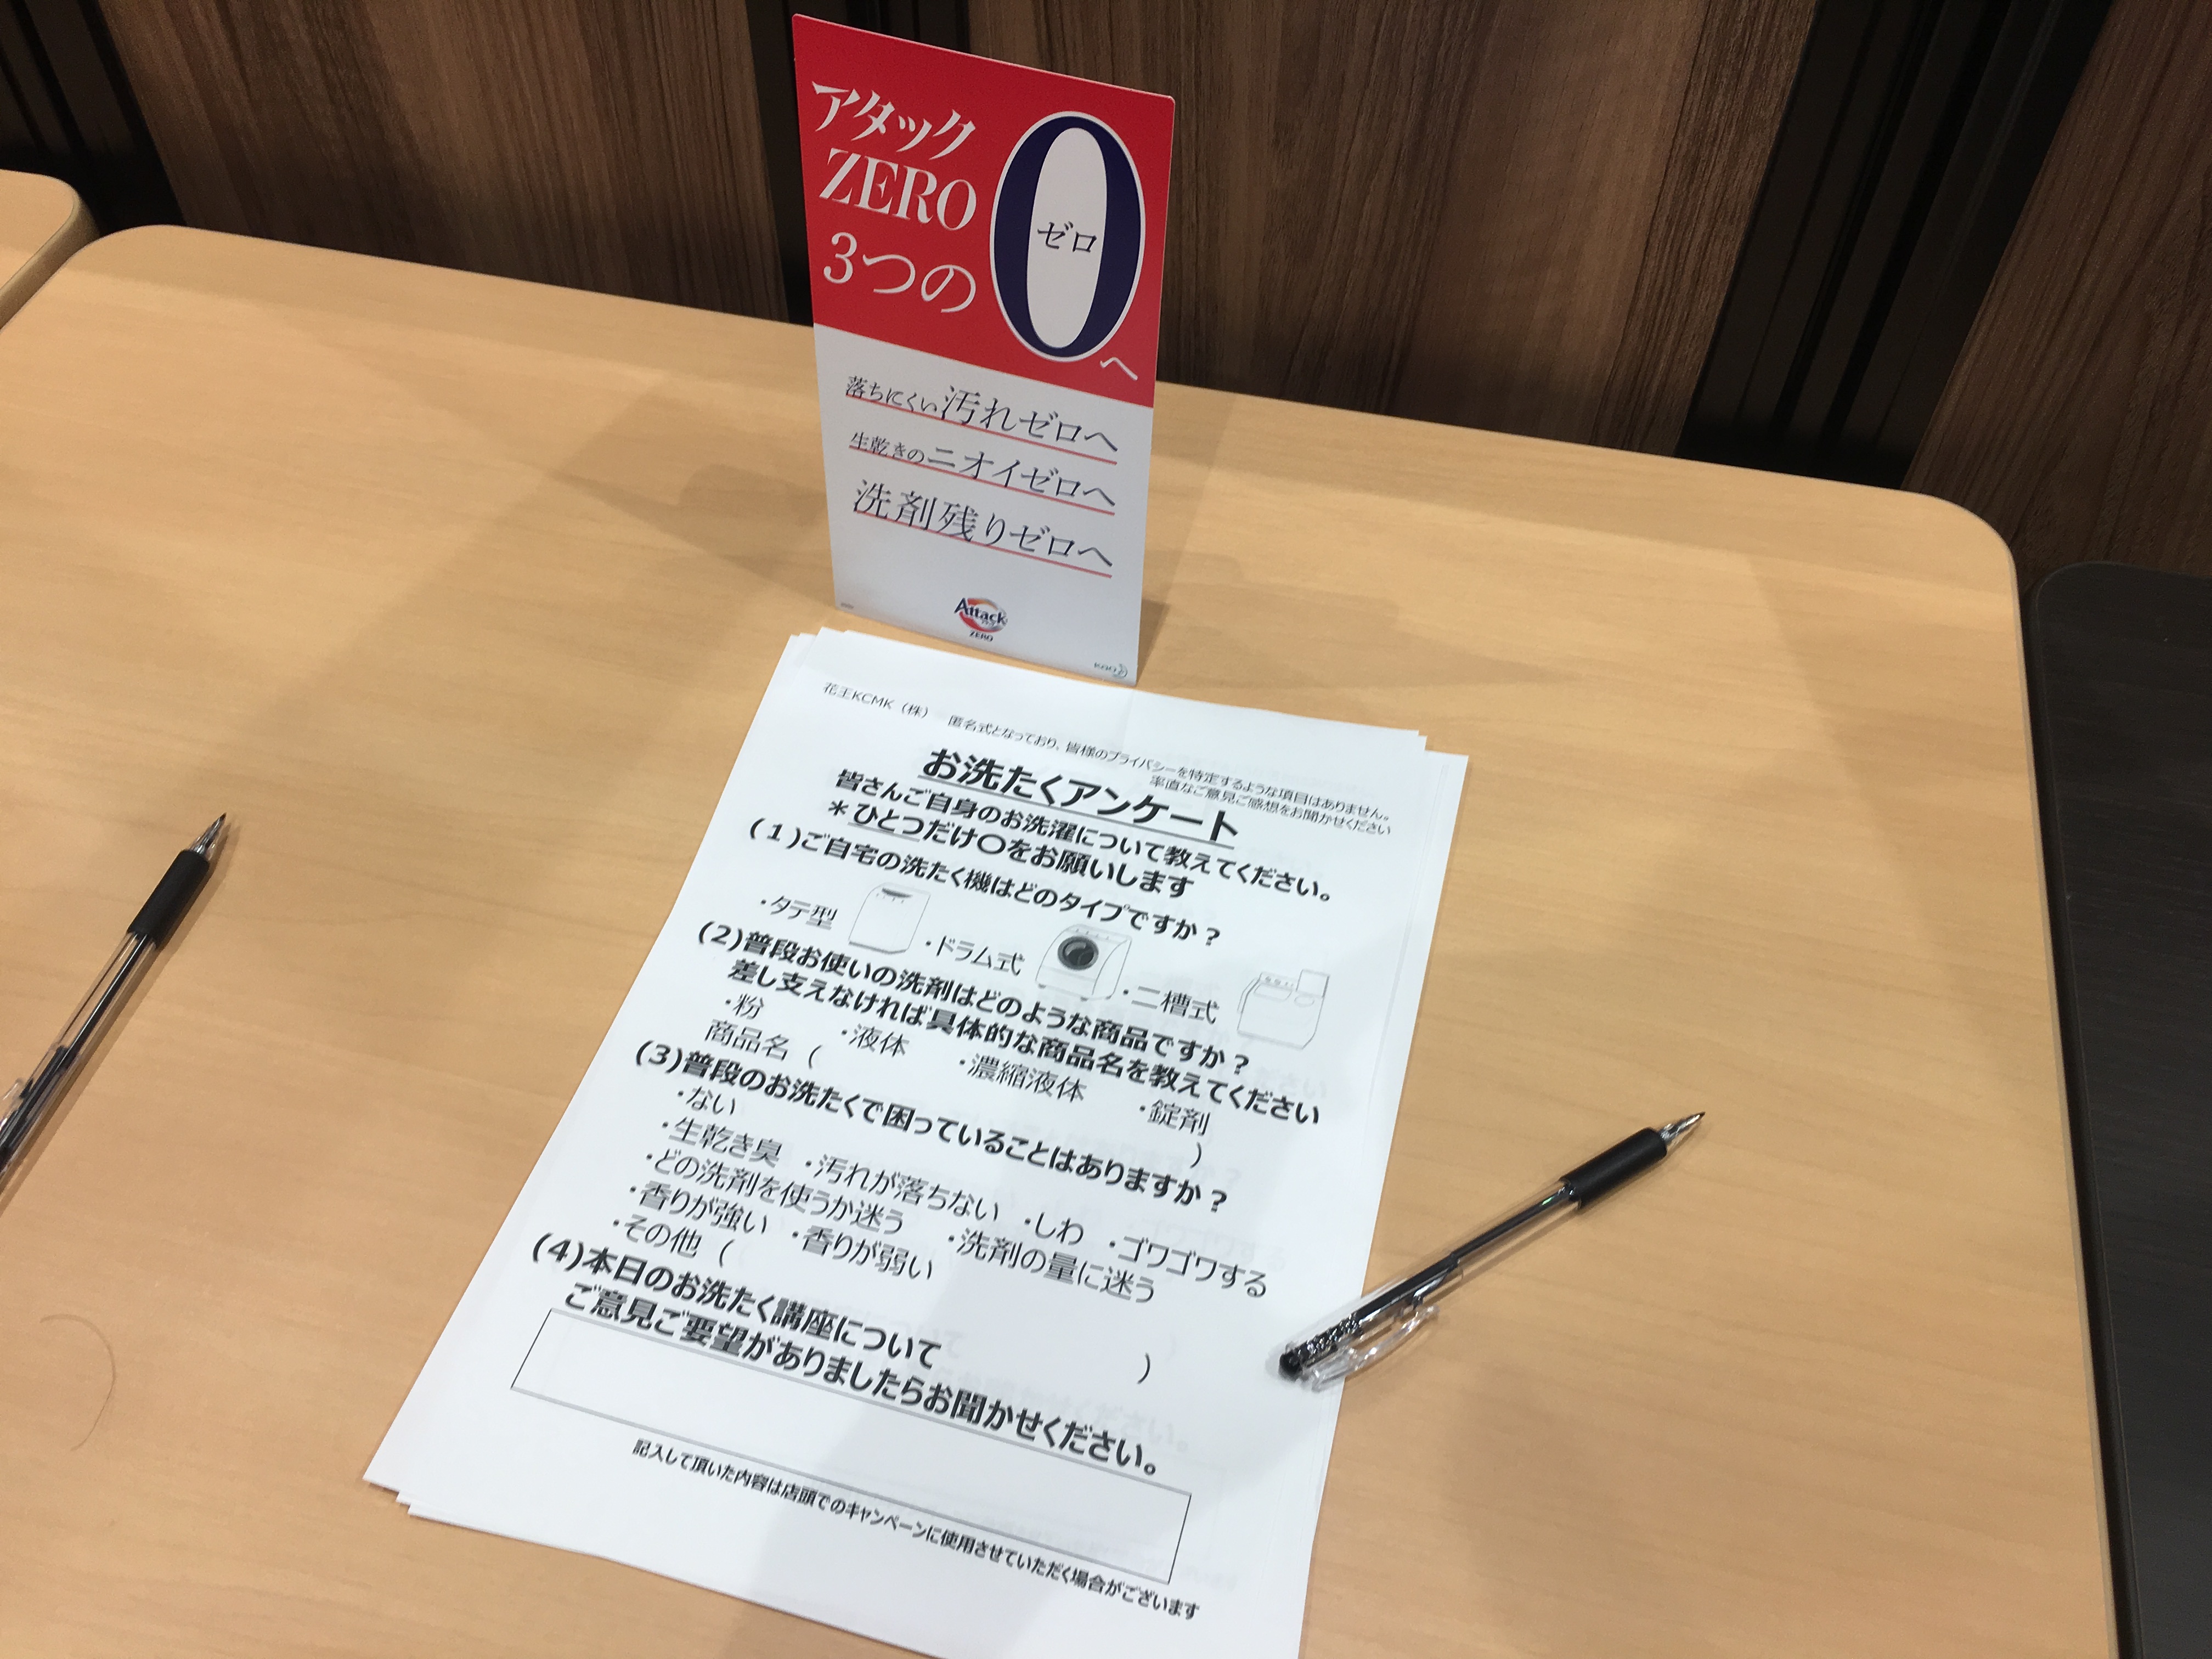 アタック
ZERO
3つの
0
ゼロ
へ
落ちにくい汚れゼロへ
生乾きのニオイゼロへ
洗剤残りゼロへ
Attack
ZERO
Kao
花王KCMK（株）　匿名式となっており、皆様のプライバシーを特定するような項目はありません。
率直なご意見ご感想をお聞かせください
お洗たくアンケート
皆さんご自身のお洗濯について教えてください。
＊ひとつだけ〇をお願いします
(１)ご自宅の洗たく機はどのタイプですか？
・タテ型 ・ドラム式 ・二槽式
(2)普段お使いの洗剤はどのような商品ですか？
差し支えなければ具体的な商品名を教えてください
・粉 ・液体 ・濃縮液体 ・錠剤
商品名（ ）
(3)普段のお洗たくで困っていることはありますか？
・ない
・生乾き臭 ・汚れが落ちない ・しわ ・ゴワゴワする
・どの洗剤を使うか迷う ・洗剤の量に迷う
・香りが強い ・香りが弱い
・その他（ ）
(4)本日のお洗たく講座について
ご意見ご要望がありましたらお聞かせください。
記入して頂いた内容は店頭でのキャンペーンに使用させていただく場合がございます